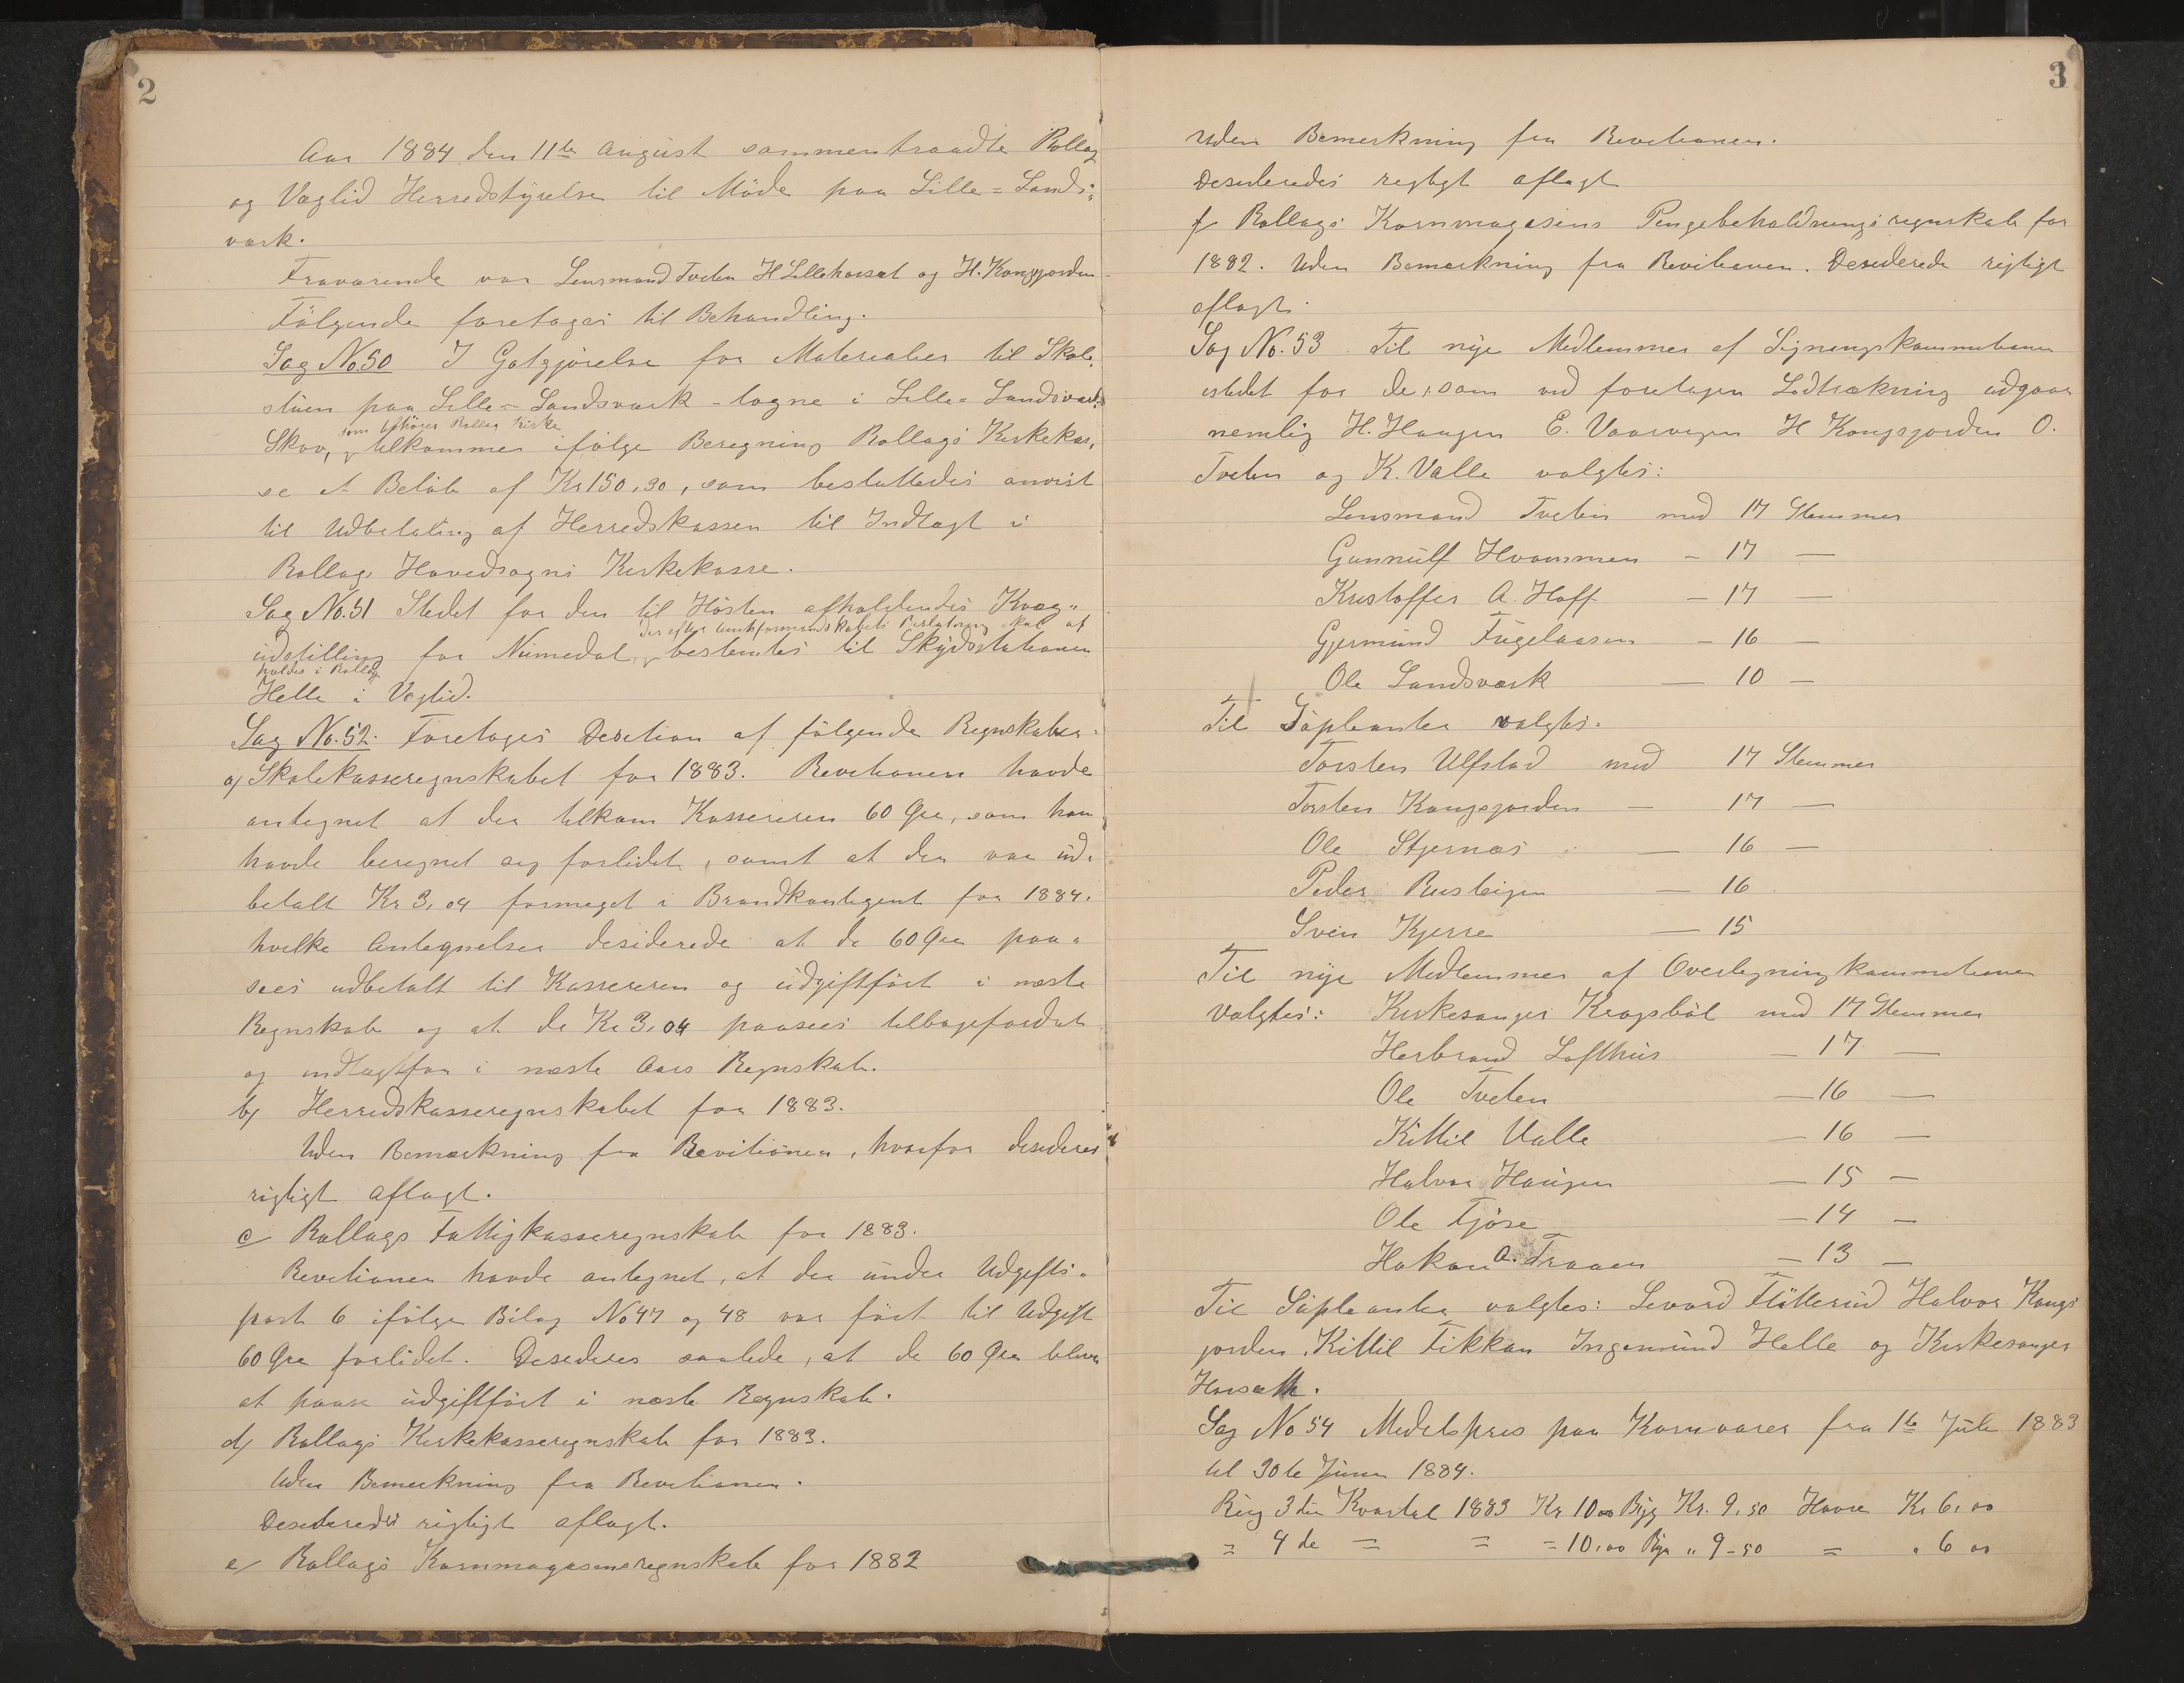 2
Aar 1884 den 11te August sammentraadte Rollag
og Væglid Herredstyrelse til Möde paa Lille=Lands=
værk.
Fraværende var Lensmand Tveten H Lillehorset og H. Kongsjorden
Fölgende foretoges til Behandling.
Sag No. 50 I Gotgjörelse for Materialier til Skole
stuen paa Lille=Landsværk - tagne i Lille=Landsværk
som tilhörer Rollag Kirke
Skov, tilkommer ifölge Beregning Rollags Kirkekas,
se et Belöb af Kr 150,30, som besluttedes anvist
til Udbetaling af Herredskassen til Indtægt i
Rollags Hovedsogns Kirkekasse.
Sag No. 51 Stedet for den til Hösten afholdendes Kvæg=
der efter Amtsformandskabets Beslutning skal af
udstilling for Numedal, bestemtes til Skydsstationen
holdes i Rollag
Helle i Væglid.
Sag No. 52. Foretoges Desition af fölgende Regnskaber.
a) Skolekasseregnskabet for 1883. Revitionen havde
antegnet at der tilkom Kassereren 60 Öre, som han
havde beregnet seg forlidet, samt at der var ud=
betalt Kr 3,04 formeget i Brandkontigent for 1884.
hvilke Antegnelser desiderede at de 60 Öre paa=
sees udbetalt til Kassereren og udgiftfört i næste
Regnskab og at de Kr 3,04 paasees tilbagefordret
og indtægtfört i næste Aars Regnskab.
b) Herredskasseregnskabet for 1883.
Uden Bemærkning fra Revitionen, hvorfor desideres
rigtigt aflagt.
c) Rollags Fattigkasseregnskab for 1883.
Revitionen havde antegnet, at der under Udgifts=
post 6 ifölge Bilag No 47 og 48 var fört til Udgift
60 Öre forlidet. Desideres saalede, at de 60 Öre bliver
at paase udgiftfört i næste Regnskab.
d) Rollags Kirkekasseregnskab for 1883.
Uden Bemerkning fra Revitionen.
Desideredes rigtigt aflagt.
e) Rollags Kornmagasinsregnskab for 1882
3
Uden Bemerkning fra Revitionen.
Desideredes regtigt aflagt
f) Rollags Kornmagasins Pengebeholdningsregnskab for
1882. Uden Bemærkning fra Revitionen. Desiderede rigtigt
aflagt.
Sag No. 53. Til nye Medlemmer af Ligningskommitionen
istedet for de, som ved foretagen Lodtrækning udgaar
nemlig H. Haugen E. Vaarvegen H Kongsjorden O.
Tveten og K. Valle valgtes:
Lensmand Tveten med 17 Stemmer
Gunnulf Hvammen - 17 -
Kristoffer A. Hoff - 17 -
Gjermund Fugelaasen - 16 -
Ole Landsværk - 10 -
Til Supleanter valgtes.
Torsten Ulfstad med 17 Stemmer
Torsten Kongsjorden - 17 -
Ole Stjernæs - 16 -
Peder Rusteigen - 16
Svein Kjerre - 15
Til nye Medlemmer af Overligningkommitionen
valgtes: Kirkesanger Kragsböl med 17 Stemmer
Herbrand Lofthus - 17 -
Ole Tveten - 16 -
Kittil Valle - 16 -
Halvor Haugen - 15 -
Ole Fjöse - 14 -
Hakon A. Traaen - 13 -
Til Supleanter valgtes: Sevard Fläterud Halvor Kongs
jorden, Kittil Fikkan Ingemund Helle og Kirkesanger
Horsæth.
Sag No 54 Medelspris paa Kornvarer fra 1te Juli 1883
til 30te Juni 1884.
Rug 3die Kvartal 1883 Kr 10,00 Byg Kr. 9,50 Havre Kr 6,00
= 4de = = = 10,00 Byg " 9-50 = " 6 00